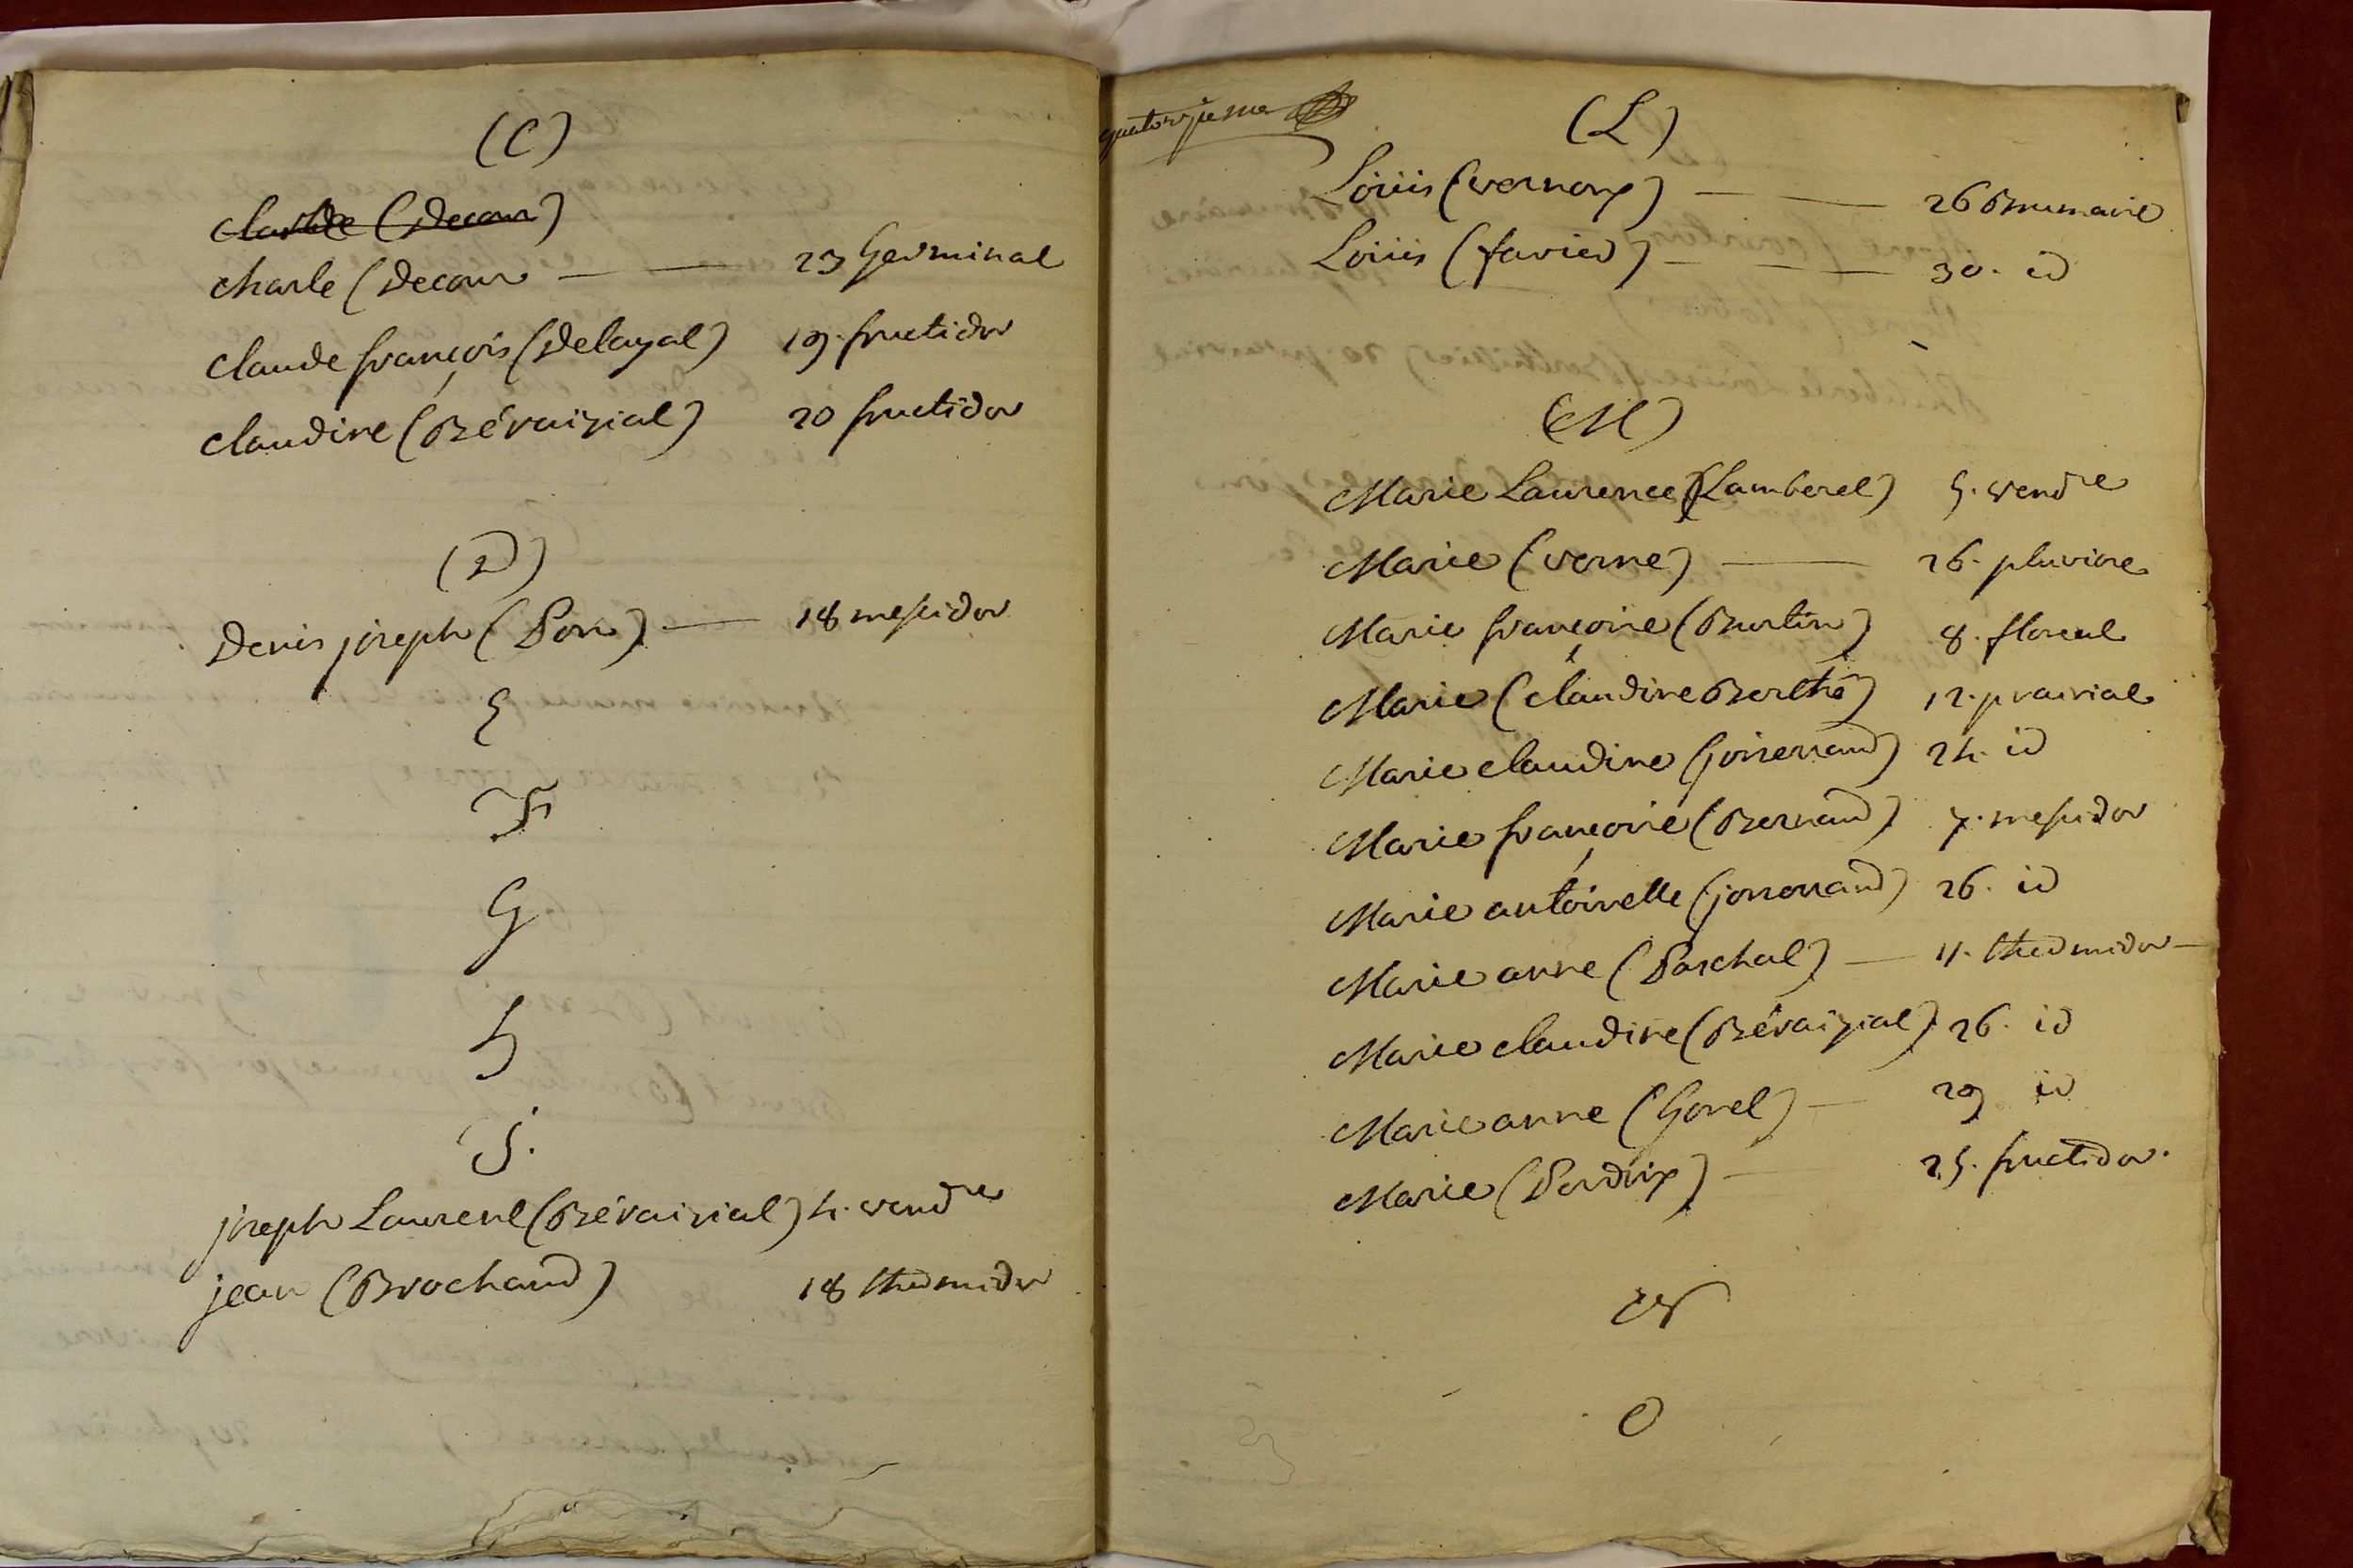 (C)
Claude (Decour)
Charle (Decour — — 23 Germinal
Claude françois (Delayal) 19. fructidor
Claudine (Bévaizial) 20 fructidor
(D)
Denis joseph (Pon) — 18 messidor
E
F
G
h
J.
joseph Laurent (Bévaizial) 4. vend re
jean (Brochand) 18 thermidor
quatorzieme
(L)
Louis (vernoux) — — 26 Brumaire
Louis (favier) — — 30. id
(M)
Marie Laurence (Lamberel) 5. vend re
Marie (verne) — 26. pluviose
Marie françoise (Burtin) 8. floreal
Marie (claudine Berthé) 12. prairial
Marie claudine (joiserrand) 24. id
Marie françoise (Bernand) 7. messidor
Marie antoinette (jonorrand) 26. id
Marie anne (Paschal) — 11. thermidor —
Marie claudine (Bévaizial) 26. id
Marie anne (Gorel) — 29 id
Marie (Perdrix) — 25. fructidor.
N
O